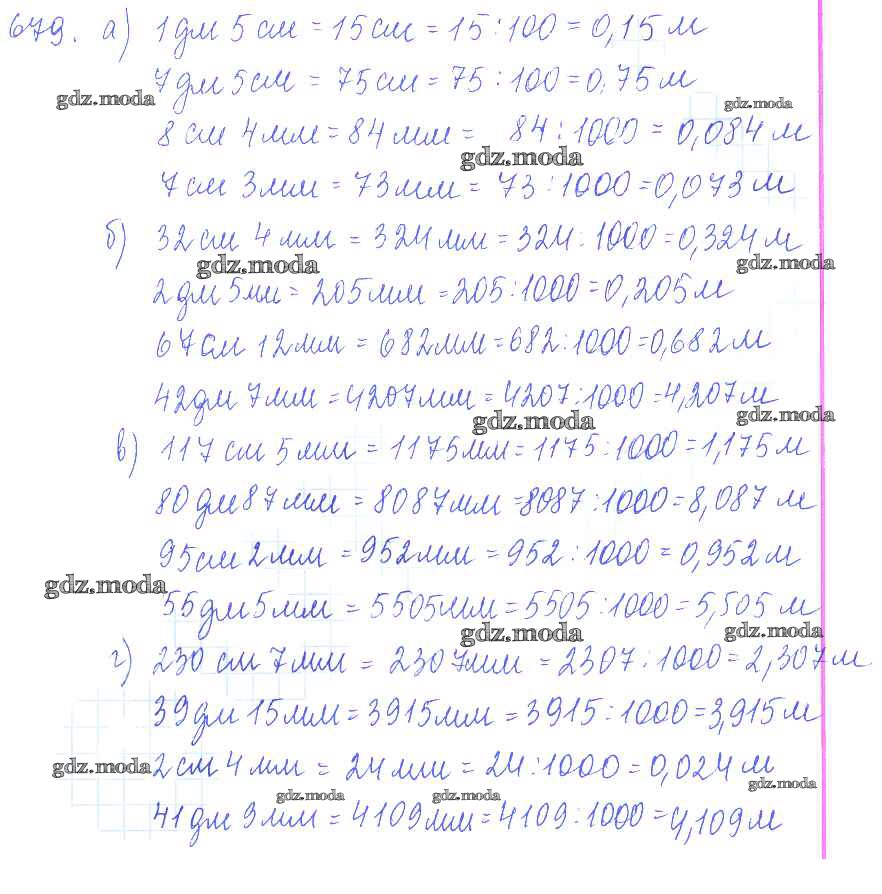 679. а) 1дм 5см = 15см = 15:100 = 0,15м
7дм 5см = 75см = 75:100 = 0,75м
gdz.moda gdz.moda
8см 4мм = 84мм = 84:1000 = 0,084м
gdz.moda
7см 3мм = 73мм = 73:1000 = 0,073м
б) 32см 4мм = 324мм = 324:1000 = 0,324м
gdz.moda gdz.moda
2дм 5мм = 205мм = 205:1000 = 0,205м
67см 12мм = 682мм = 682:1000 = 0,682м
42дм 7мм = 4207мм = 4207:1000 = 4,207м
gdz.moda gdz.moda
в) 117см 5мм = 1175мм = 1175:1000 = 1,175м
80дм 87мм = 8087мм = 8087:1000 = 8,087м
95см 2мм = 952мм = 952:1000 = 0,952м
gdz.moda
55дм 5мм = 5505мм = 5505:1000 = 5,505м
gdz.moda gdz.moda
г) 230см 7мм = 2307мм = 2307:1000 = 2,307м
39дм 15мм = 3915мм = 3915:1000 = 3,915м
gdz.moda 2см 4мм = 24мм = 24:1000 = 0,024м
gdz.moda gdz.moda gdz.moda
41дм 9мм = 4109мм = 4109:1000 = 4,109м